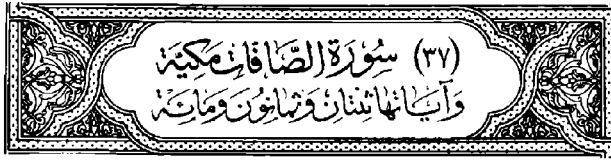 (٣٧) سُورَة الصَّافَّات مَكيَّة
وَآيَاتُهَا ثِنْتَانِ وَثَمَانُونَ وَمِائَة